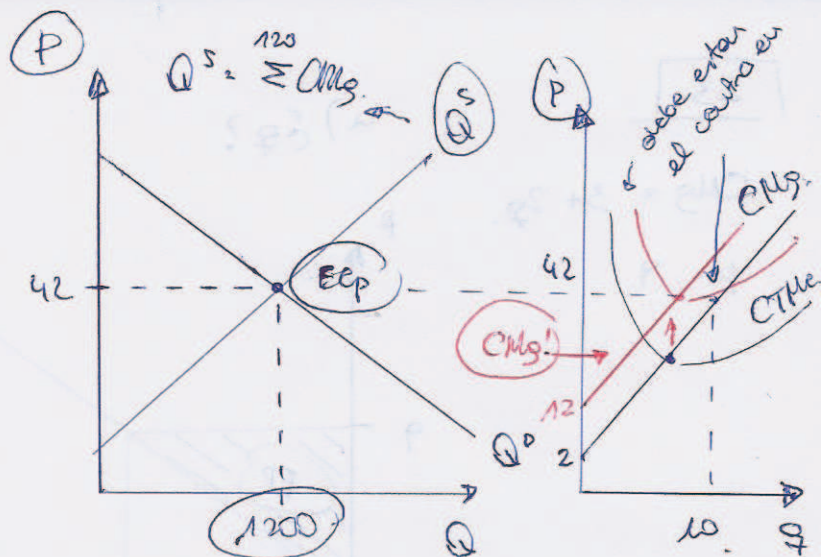 P
120
Q^S = Σ CMg.
Q^S
42
ECp
Q^D
1200
Q
P
debe estar
el centro en
CMg.
42
CTMe
CMg'
12
2
10
q